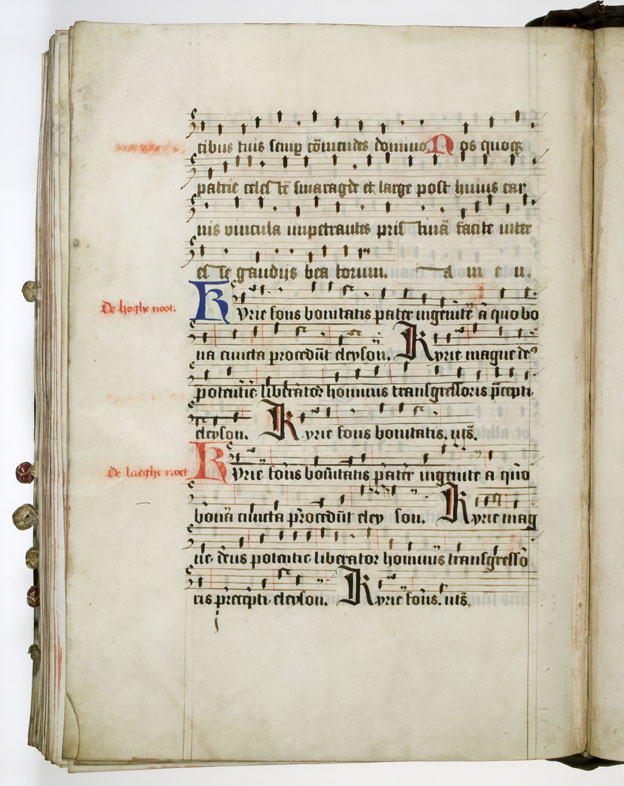 cibus tuis semp cōmendes domino Nos quoqꝫ
patrie celes te smaragde et large post huius car
nis vincula impetrantes pris tinā facite inter
es se gaudijs bea torum. a m e n.
De hoghe noot.
Kyrie fons bonitatis pater ingenite a quo bo
na cuncta procedūt eleyson. Kyrie magne de⁹
potencie liberator hominis transgressoris p̄cepti
eleyson. Kyrie fons bonitatis. uts̄.
De laeghe noet
Kyrie fons bonitatis pater ingenite a quo
bona cuncta procedunt eley son. Kyrie mag
ne deus potentie liberator hominis transgresso
ris precepti eleyson. Kyrie fons. uts̄.